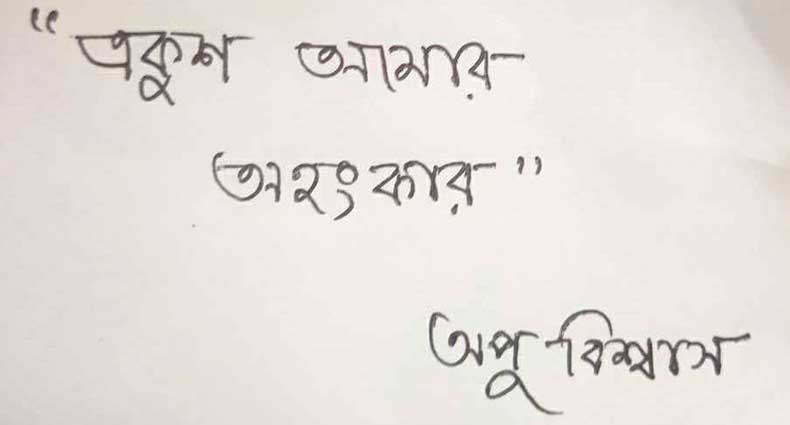 “একুশ আমার
অহংকার”
অপু বিশ্বাস